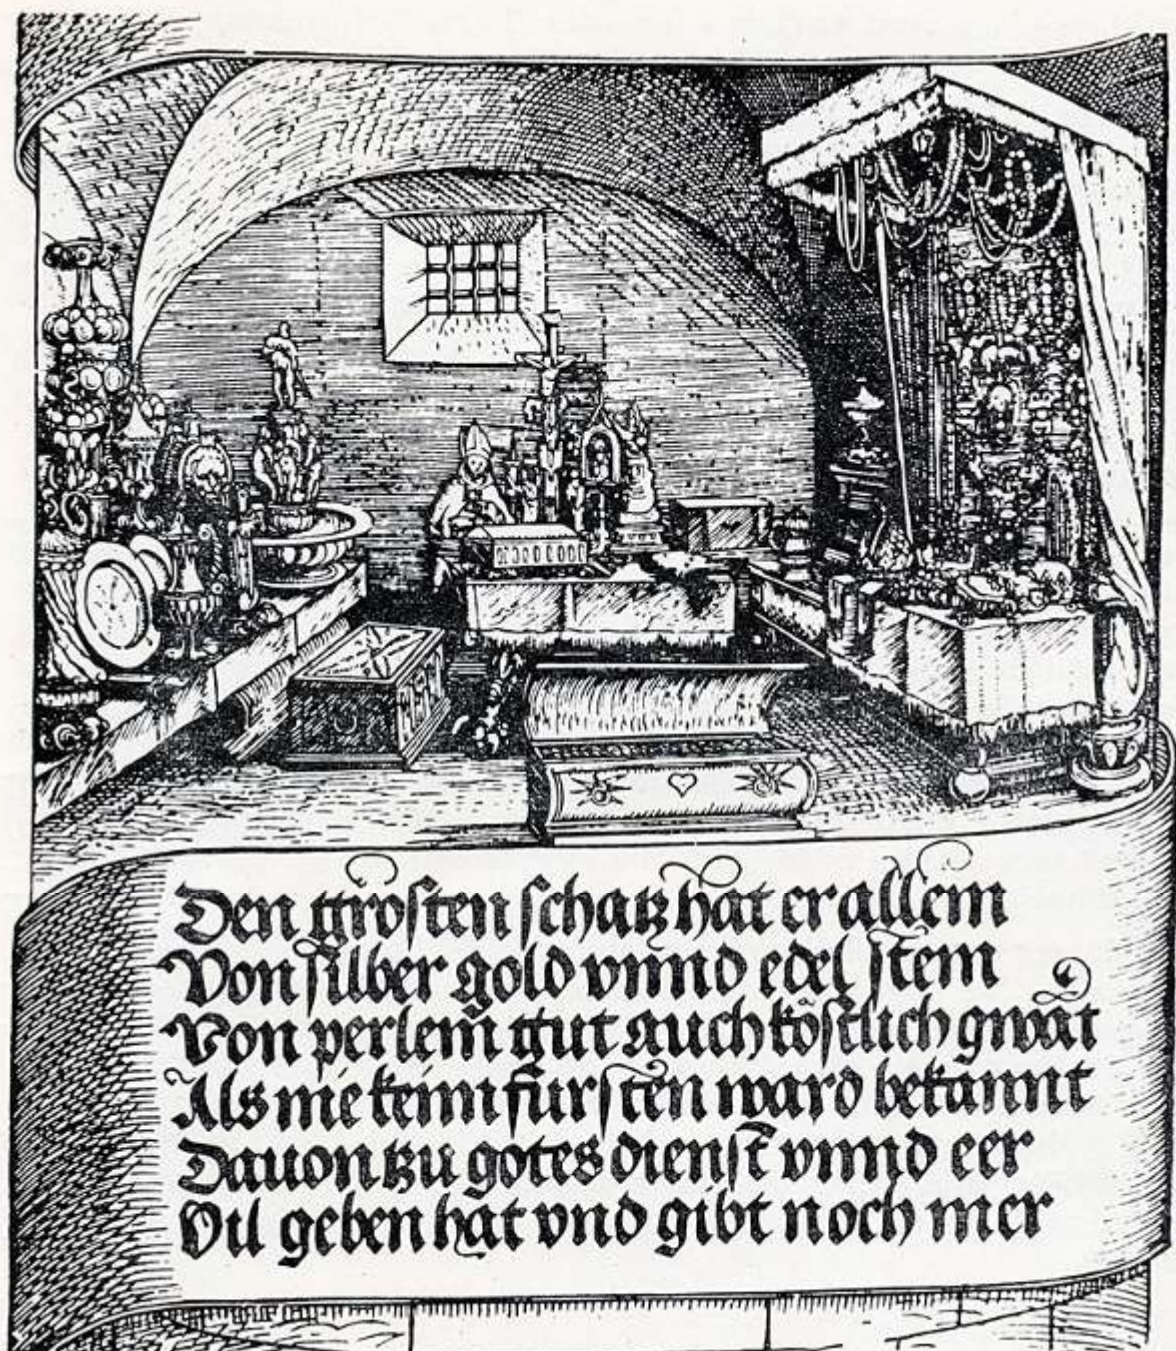 Den grosten schatz hat er allein
Von silber gold vnnd edel stein
Von perlein gut auch köstlich gwat
Als nie keim fursten ward bekannt
Dauon tzu gotes dienst vnnd eer
Vil geben hat vnd gibt noch mer